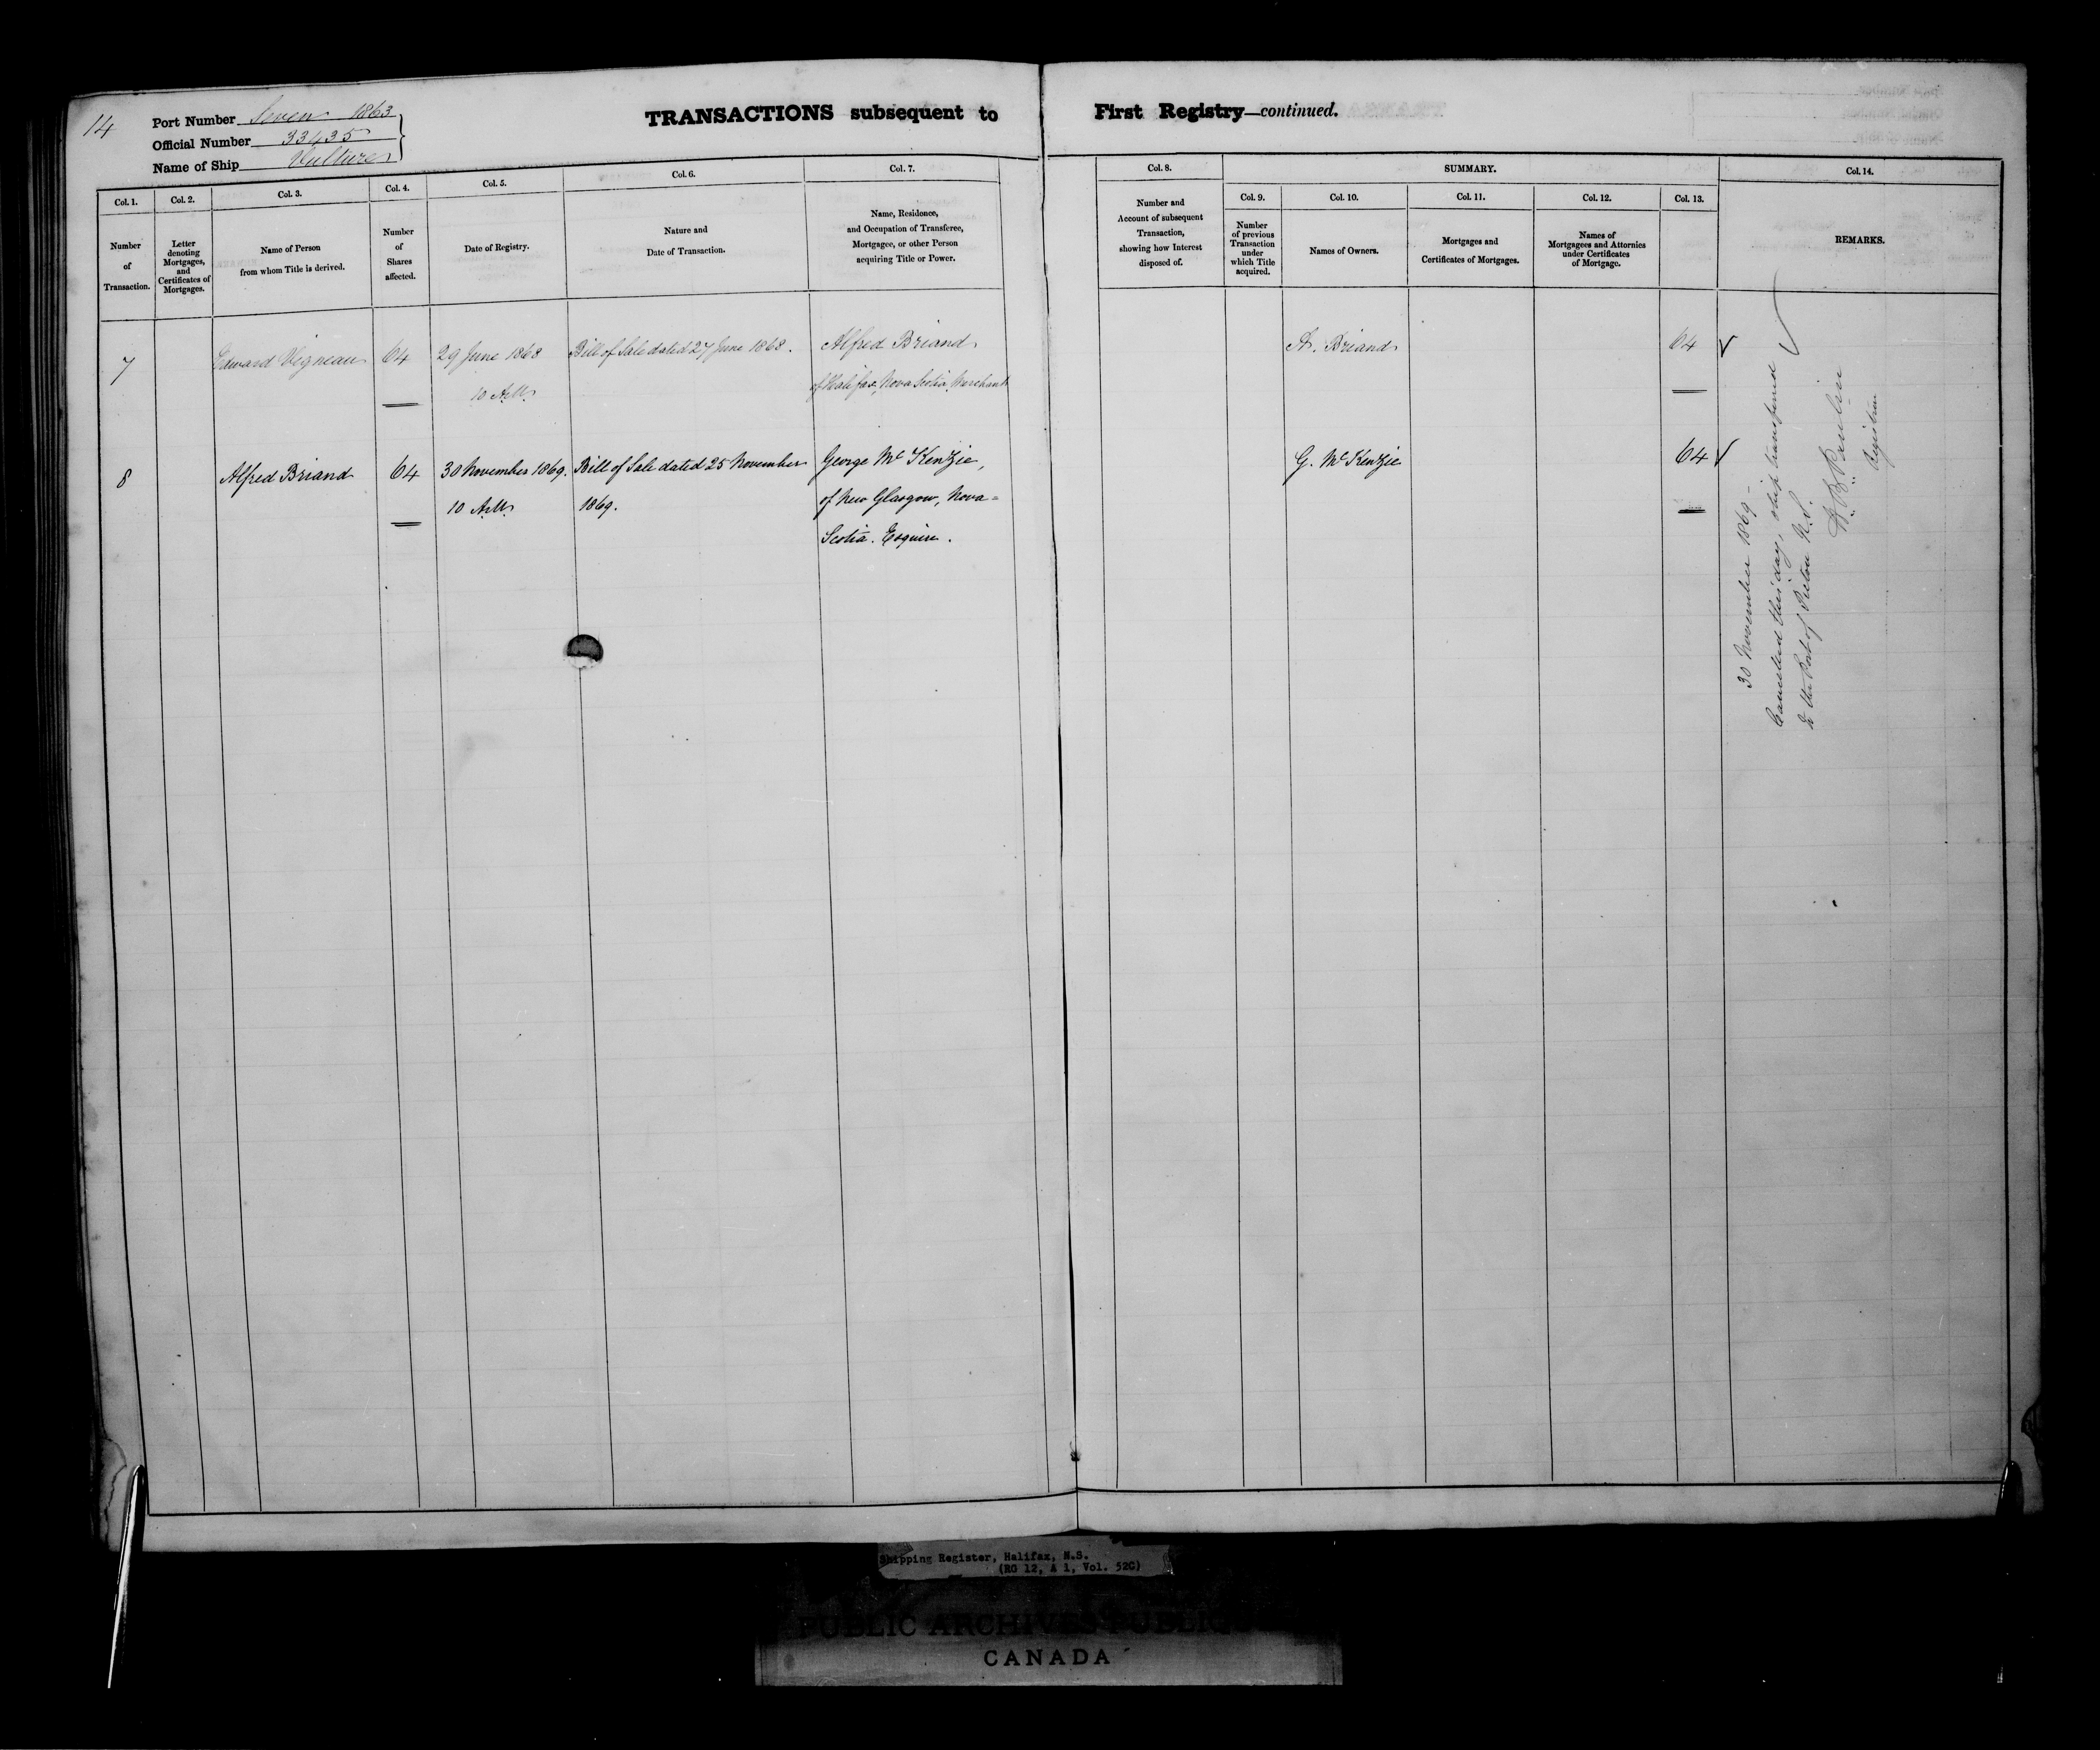 14
Port Number Seven 1863
Official Number 33435
Name of Ship Vulture
TRANSACTIONS subsequent to First Registry—continued.
Col. 1.
Number
of
Transaction.
Col. 2.
Letter
denoting
Mortgages,
and
Certificates of
Mortgages.
Col. 3.
Name of Person
from whom Title is derived.
Col. 4.
Number
of
Shares
affected.
Col. 5.
Date of Registry.
Col. 6.
Nature and
Date of Transaction.
Col. 7.
Name, Residence,
and Occupation of Transferee,
Mortgagee, or other Person
acquiring Title or Power.
Col. 8.
Number and
Account of subsequent
Transaction,
showing how Interest
disposed of.
SUMMARY.
Col. 9.
Number
of previous
Transaction
under
which Title
acquired.
Col. 10.
Names of Owners.
Col. 11.
Mortgages and
Certificates of Mortgages.
Col. 12.
Names of
Mortgagees and Attornies
under Certificates
of Mortgage.
Col. 13.
Col. 14.
REMARKS.
7 Edward Vigneau 64 29 June 1868 Bill of Sale dated 27 June 1868. Alfred Briand A. Briand 64
10 A.M. of Halifax, Nova Scotia, Merchant
8 Alfred Briand 64 30 November 1869. Bill of Sale dated 25 November George Mc Kenzie, G. Mc Kenzie 64
10 A.M. 1869. of New Glasgow, Nova=
Scotia. Esquire.
30 November 1869 -
Cancelled this day, ship transferred
to the Port of Pictou N.S.
Registrar
Shipping Register, Halifax, N.S.
(RG 12, A 1, Vol. 52C)
PUBLIC ARCHIVES PUBLIQUES
CANADA